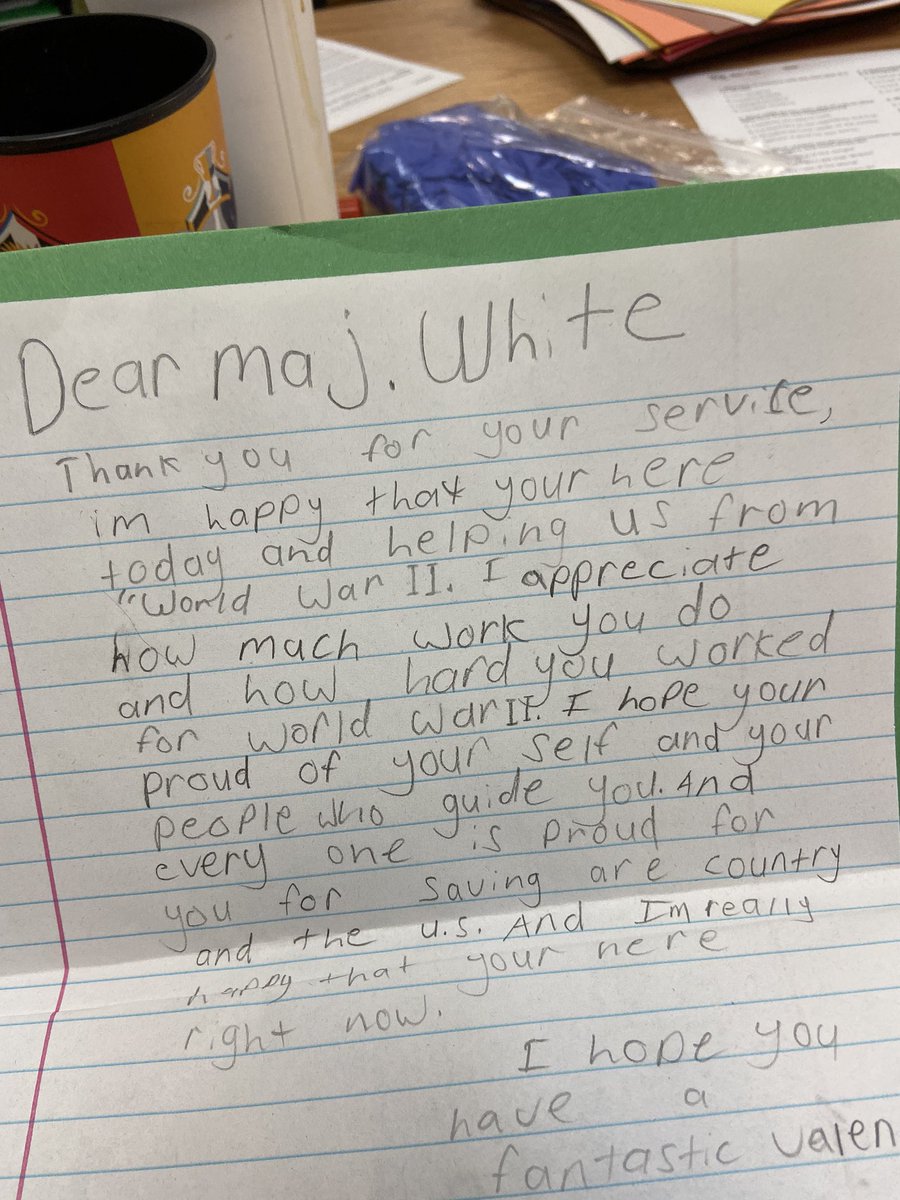 Dear maj. White
Thank you for your service,
im happy that your here
today and helping us from
"World War II. I appreciate
how much work you do
and how hard you worked
for world war II. I hope your
proud of your self and your
people who guide you. And
every one is proud for
you for saving are country
and the u.s. And Im really
happy that your here
right now.
I hope you
have a
fantastic valen